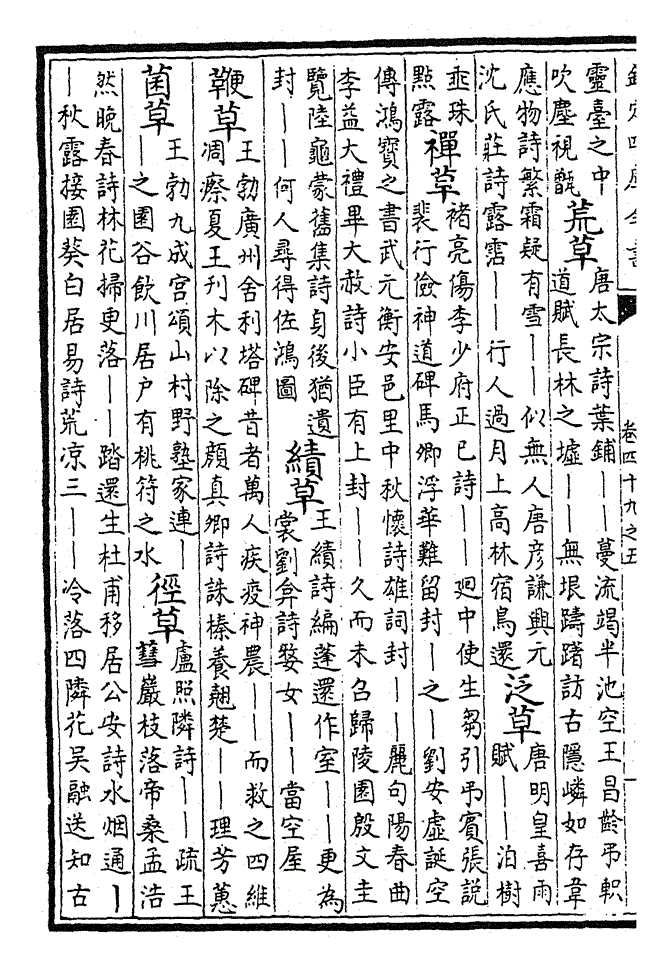 欽定四庫全書
卷四十九之五
靈臺之中
吹塵視甑
荒草
唐太宗詩葉鋪——蔓流竭半池空王昌齡弔軹
道賦長林之墟——無垠躊躇訪古隱嶙如存韋
應物詩繁霜疑有雪——似無人唐彦謙興元
沈氏莊詩露霑——行人過月上高林宿鳥還
泛草
唐明皇喜雨
賦——泊樹
垂珠
點露
禪草
褚亮傷李少府正已詩——廻中使生芻引弔賓張説
裴行儉神道碑馬卿浮華難留封—之—劉安虛誕空
傳鴻寳之書武元衡安邑里中秋懷詩雄詞封——麗句陽春曲
李益大禮畢大赦詩小臣有上封——久而未召歸陵園殷文圭
覽陸龜蒙舊集詩身後猶遺
封——何人尋得佐鴻圖
績草
王績詩編蓬還作室——更為
裳劉弇詩婺女——當空屋
鞭草
王勃廣州舍利塔碑昔者萬人疾疫神農——而救之四維
凋瘵夏王刋木以除之顔真卿詩誅榛養翹楚——理芳蕙
菌草
王勃九成宫頌山村野塾家連—
—之園谷飲川居户有桃符之水
徑草
盧照隣詩——疏王
彗巖枝落帝桑孟浩
然晚春詩林花掃更落——踏還生杜甫移居公安詩水烟通—
—秋露接園葵白居易詩荒凉三——冷落四隣花吳融送知古